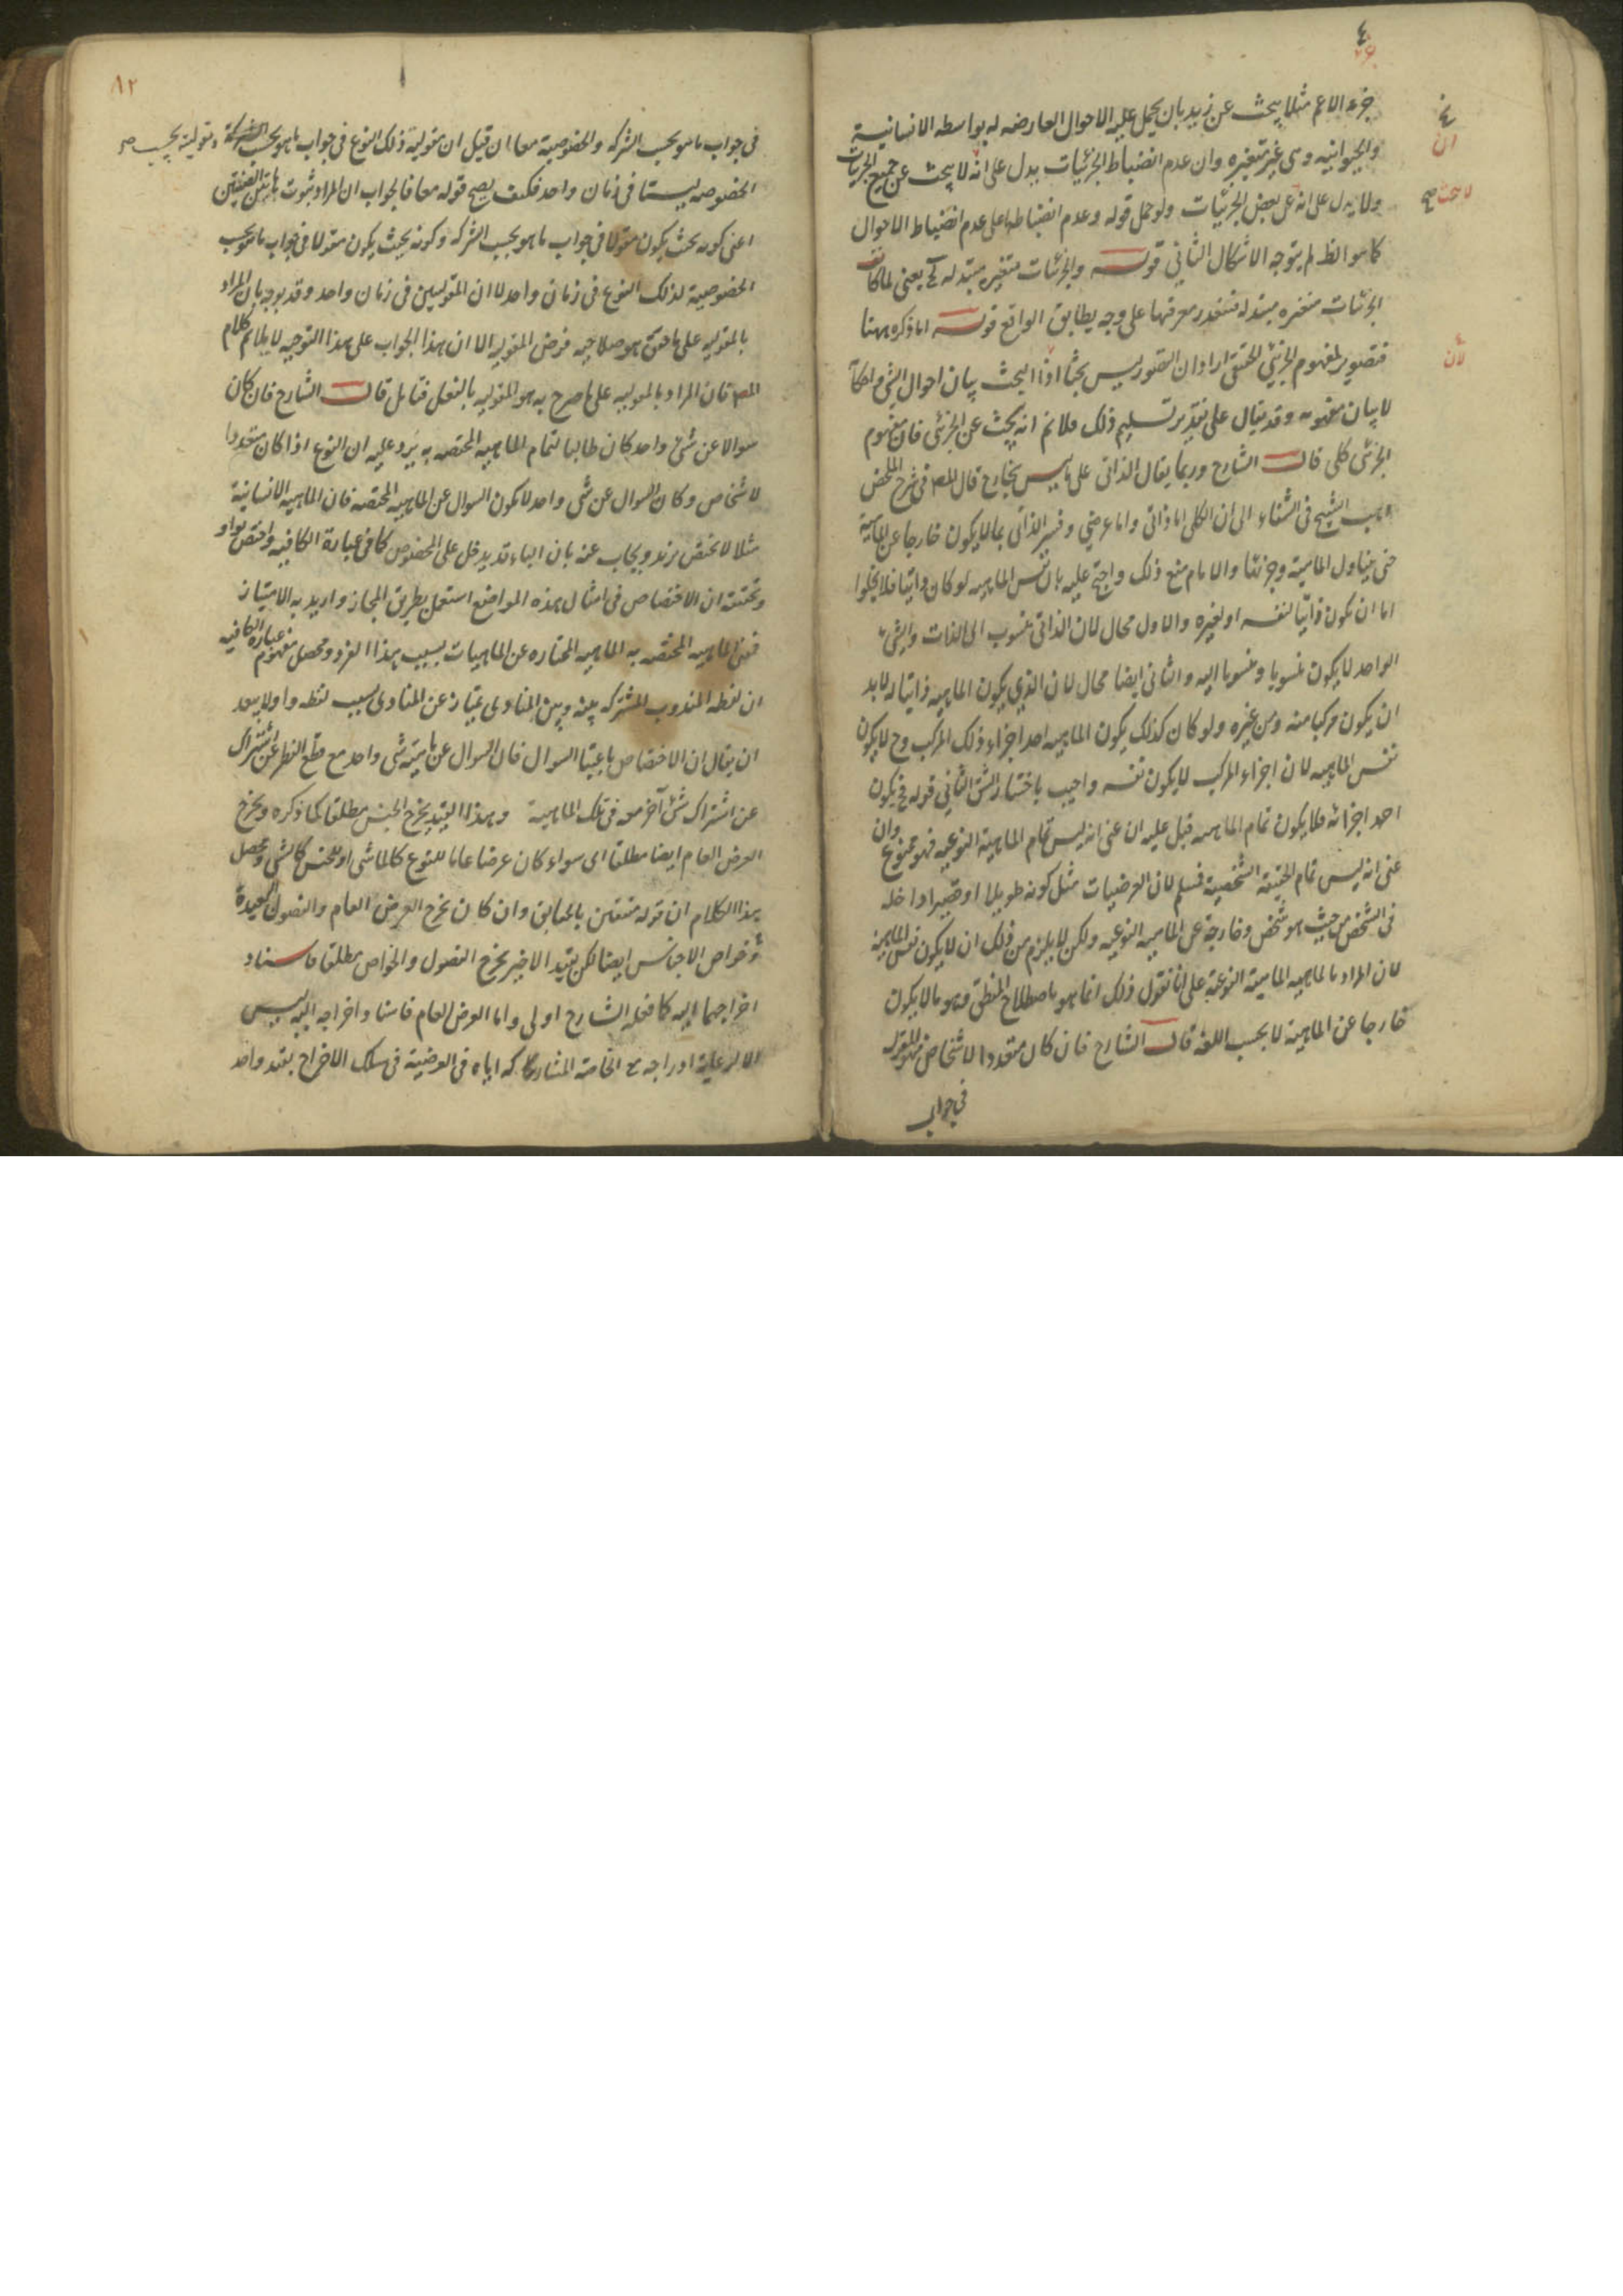 جزءه الاعم مثلا يبحث عن زيد بان يحمل عليه الاحوال العارضه له بواسطه الانسانية
والحيوانيه وهى غير متغيره وان عدم انضباط الجزئيات يدل على انه لا يبحث عن جميع الجزئيات
ولا يدل على انه عن بعض الجزئيات ولو حمل قوله وعدم انضباطها على عدم انضباط الاحوال
كما هو الظ لم يتوجه الاشكال الثانى قوله والجزئيات متغيره متبدله الخ يعنى لما كانت
الجزئيات متغيره متبدله فتتعذر معرفتها على وجه يطابق الواقع قوله اما ذكره ههنا
فتصوير لمفهوم الجزئى الحقيقى اراد ان التصور ليس بحثا اذ البحث بيان احوال الشئ واحكامه
لا بيان مفهومه وقد يقال على تقدير تسليم ذلك فلا نم انه يبحث عن الجزئى فان مفهوم
الجزئى كلى قال الشارح وربما يقال الذاتى على ما ليس بخارج قال المص فى شرح الملخص
ذهب الشيخ فى الشفاء الى ان الكلى اما ذاتى واما عرضى وفسر الذاتى بما لا يكون خارجا عن الماهية
حتى يتناول الماهية وجزئها والامام منع ذلك واحتج عليه بان نفس الماهيه لو كان ذاتيا فلا يخلوا
اما ان يكون ذاتيا لنفسه او لغيره والاول محال لان الذاتى منسوب الى الذات والشئ
الواحد لا يكون منسوبا ومنسوبا اليه والثانى ايضا محال لان الذى يكون الماهيه ذاتيا له لابد
ان يكون مركبا منه ومن غيره ولو كان كذلك يكون الماهيه احد اجزاء ذلك المركب وح لا يكون
نفس الماهيه لان اجزاء المركب لا يكون نفسه واجيب باختيار الشق الثانى قوله فح يكون
احد اجزائه فلا يكون تمام الماهيه قيل عليه ان عنى انه ليس تمام الماهية النوعيه فهو ممنوع وان
عنى انه ليس تمام الحقيقة الشخصية فمسلم لان العرضيات مثل كونه طويلا او قصيرا داخله
فى الشخص من حيث هو شخص وخارجة عن الماهيه النوعيه ولكن لا يلزم من ذلك ان لا يكون نفس الماهية
لان المراد بالماهيه الماهية النوعية على انا نقول ذلك انما هو باصطلاح المنطق وهو ما لا يكون
خارجا عن الماهية لا بحسب اللغة قال الشارح فان كان متعدد الاشخاص فهو المقول
فى جواب
ان
لان
٨٢
فى جواب ما هو بحسب الشركه والخصوصية معا ان قيل ان مقولية ذلك النوع فى جواب ما هو بحسب الشركة ومقولية بحسب
الخصوصيه ليستا فى زمان واحد فكيف يصح قوله معا فالجواب ان المراد ثبوت هاتين الصفتين
اعنى كونه بحيث يكون مقولا فى جواب ما هو بحسب الشركه وكونه بحيث يكون مقولا فى جواب ما هو بحسب
الخصوصية لذلك النوع فى زمان واحد لا ان المقوليتين فى زمان واحد وقد يوجه بان المراد
بالمقوليه على ما حقق هو صلاحيه فرض المقوليه الا ان هذا الجواب على هذا التوجيه لا يلائم كلام
المص فان المراد بالمقوليه على ما صرح به هو المقوليه بالفعل فتامل قال الشارح فان كان
سوالا عن شئ واحد كان طالبا لتمام الماهيه المختصه به يرد عليه ان النوع اذا كان متعددا
لاشخاص وكان السوال عن شئ واحد لا يكون السوال عن الماهيه المختصه فان الماهيه الانسانية
مثلا لا تختص بزيد ويجاب عنه بان الباء قد يدخل على المخصوص كما فى عبارة الكافيه واختص بوا و
وتحقيقه ان الاختصاص فى امثال هذه المواضع استعمل بطريق المجاز واريد به الامتياز
فمعنى الماهيه المختصه به الماهيه الممتازه عن الماهيات بسبب هذا الفرد ومحصل مفهوم عبارة الكافيه
ان لفظه المندوب المشتركه بينه وبين المنادى يمتاز عن المنادى بسبب لفظه وا ولا يبعد
ان يقال ان الاختصاص باعتبار السوال فان السوال عن ماهية شئ واحد مع قطع النظر عن اشتراك
عن اشتراك شئ آخر معه فى تلك الماهية وبهذا القيد يخرج الجنس مطلقا كما ذكره ويخرج
العرض العام ايضا مطلقا اى سواء كان عرضا عاما للنوع كالماشى او للجنس كالشى ومحصل
هذا الكلام ان قوله متفقين بالحقايق وان كان يخرج العرض العام والفصول البعيدة
وخواص الاجناس ايضا لكن بقيد الاخير يخرج الفصول والخواص مطلقا فاسناد
اخراجهما اليه كما فعله الشارح اولى واما العرض العام فاسناد اخراجه اليه ليس
الا لرعاية ادراجه مع الخاصة المشاركه اياه فى العرضية فى سلك الاخراج بقيد واحد